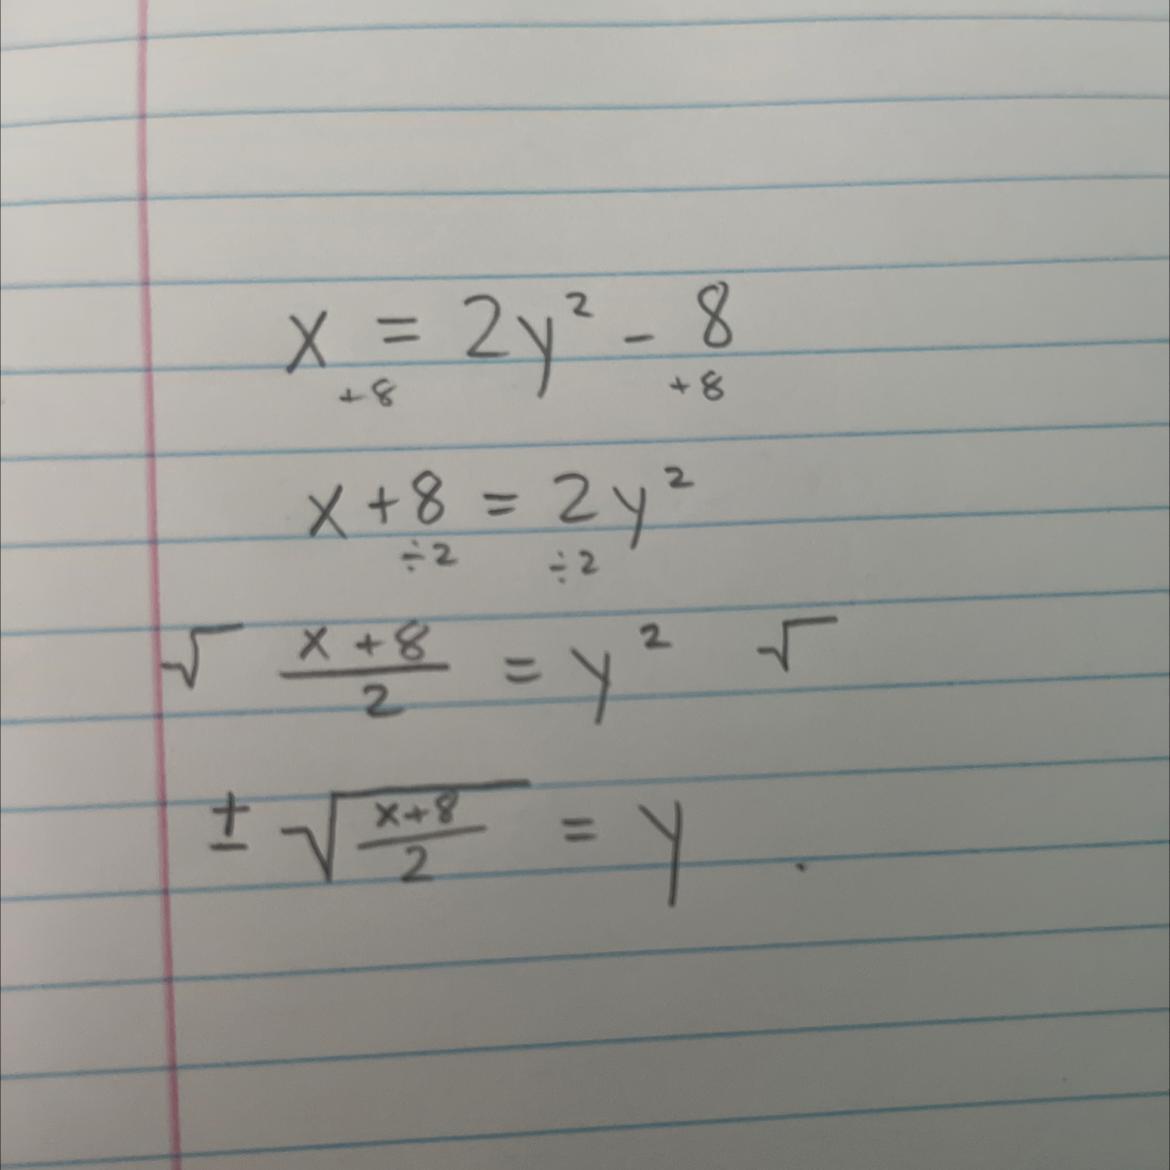 x = 2y² - 8
+8 +8
x + 8 = 2y²
÷2 ÷2
√ (x + 8)/2 = y² √
± √((x+8)/2) = y .